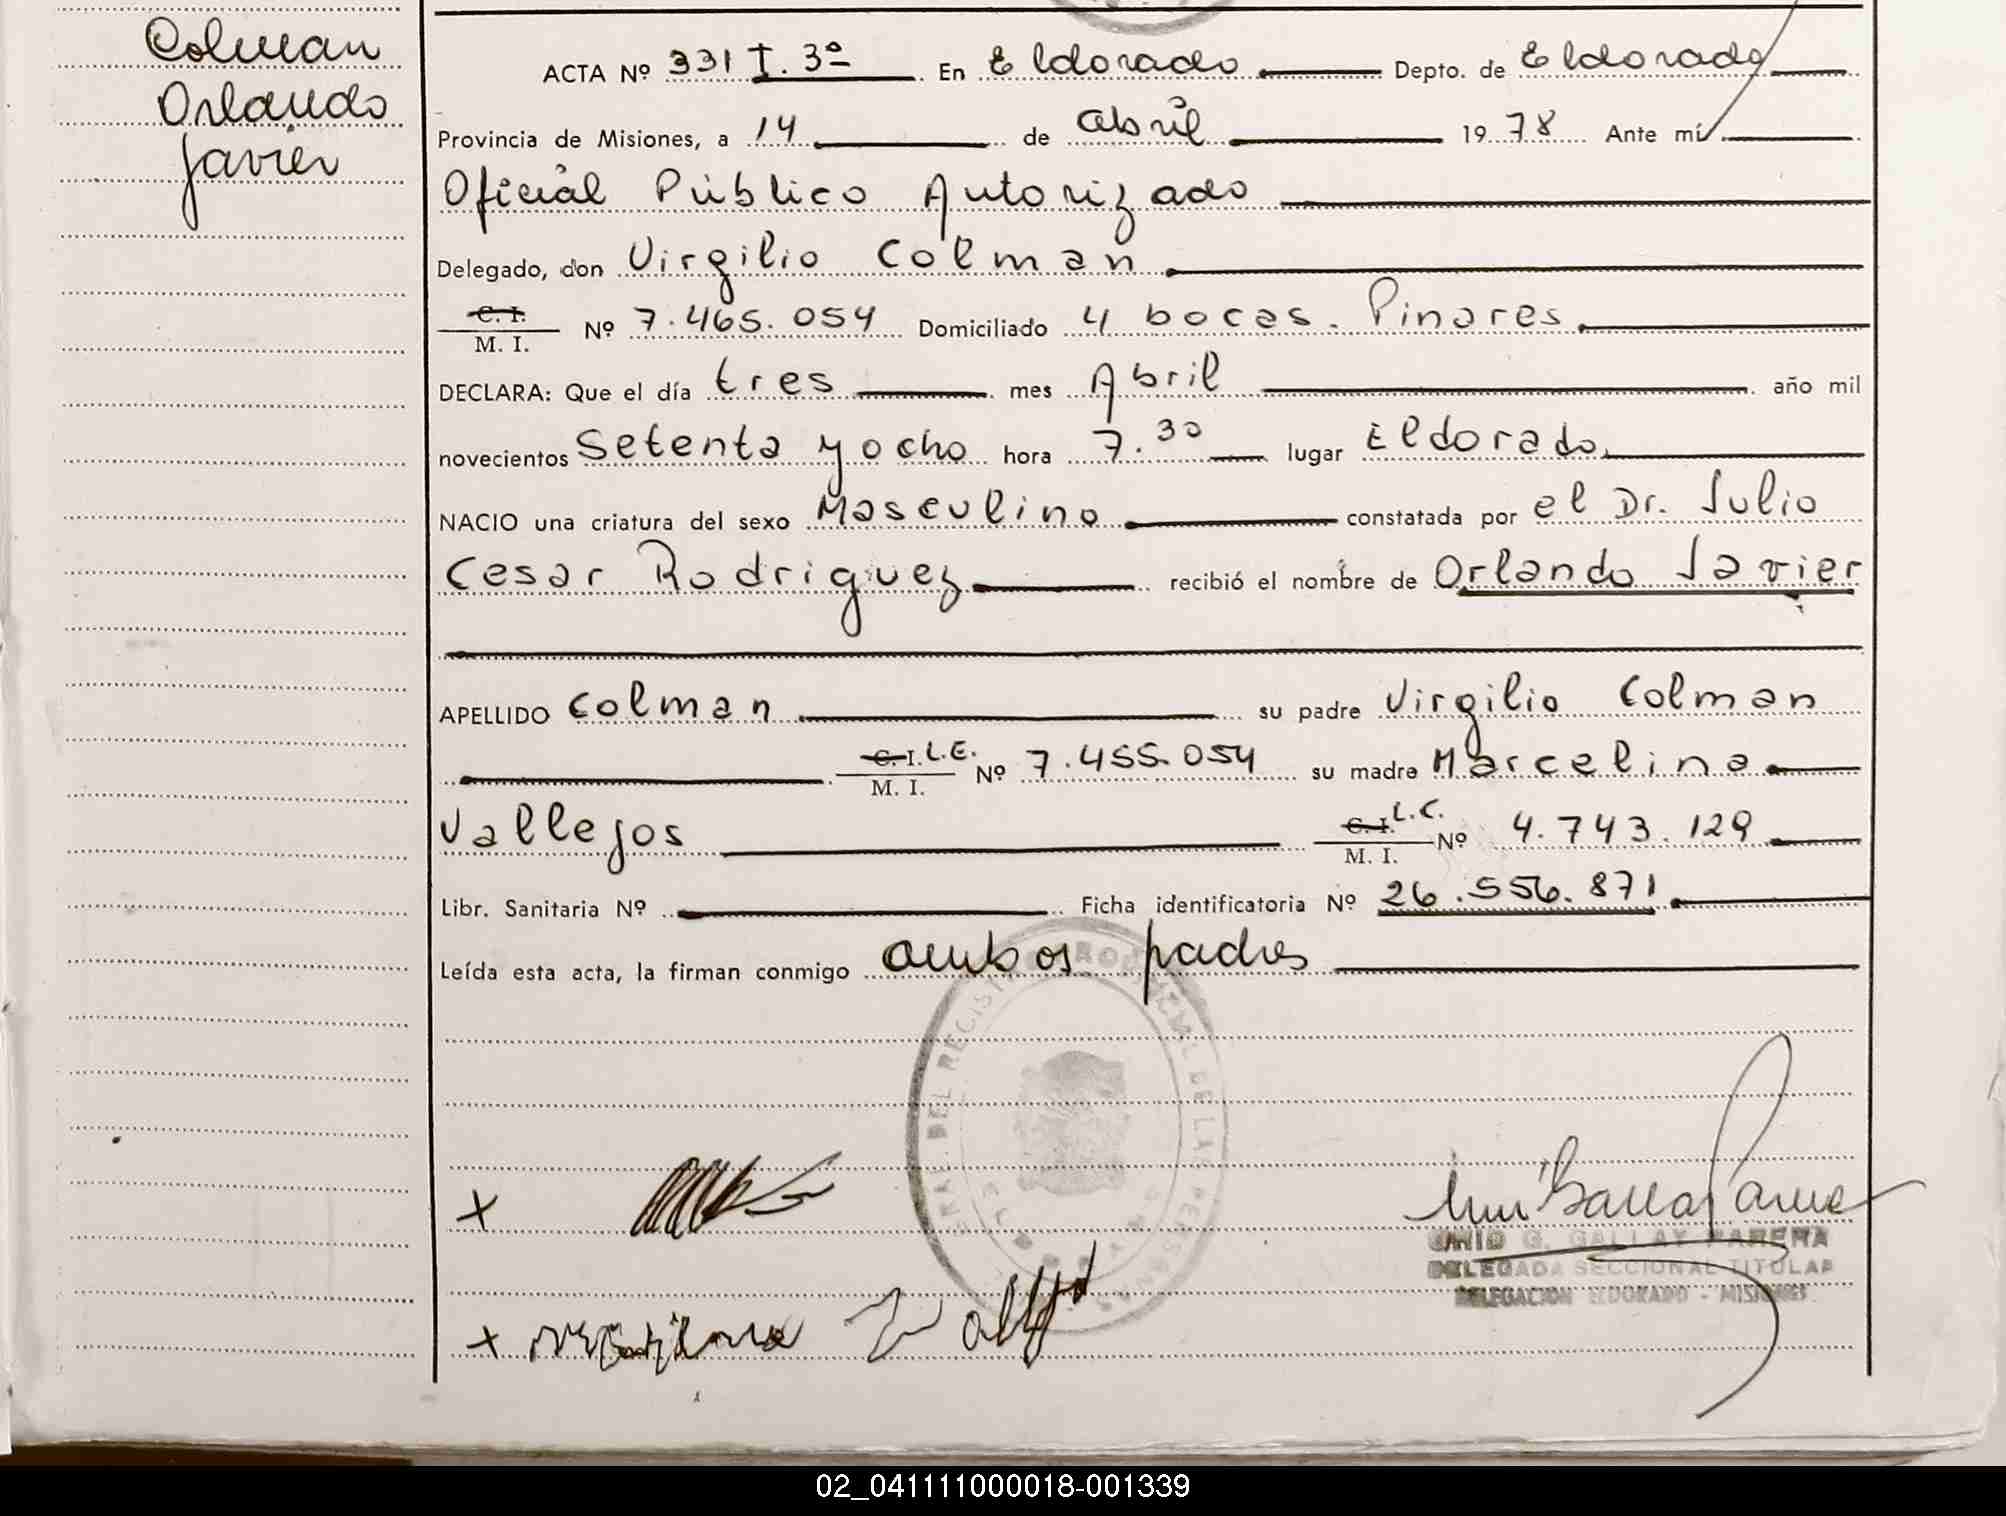 Colman
Orlando
Javier
ACTA Nº 331 T. 3º En Eldorado Depto. de Eldorado
Provincia de Misiones, a 14 de abril 1978 Ante mí
Oficial Público Autorizado
Delegado, don Virgilio Colman
C. I. M. I. Nº 7.465.054 Domiciliado 4 bocas. Pinares
DECLARA: Que el día tres mes Abril año mil
novecientos Setenta y ocho hora 7.30 lugar Eldorado
NACIO una criatura del sexo Masculino constatada por el Dr. Julio
Cesar Rodriguez recibió el nombre de Orlando Javier
APELLIDO Colman su padre Virgilio Colman
C. I. L.E. M. I. Nº 7.455.054 su madre Marcelina
Vallejos C. I. L.C. M. I. Nº 4.743.129
Libr. Sanitaria Nº Ficha identificatoria Nº 26.556.871
Leída esta acta, la firman conmigo ambos padres
DEL REGISTRO PROVINCIAL DE LAS PERSONAS
+
G. GALLAY PARERA
DELEGADA SECCIONAL TITULAR
DELEGACION ELDORADO - MISIONES
+
02_041111000018-001339